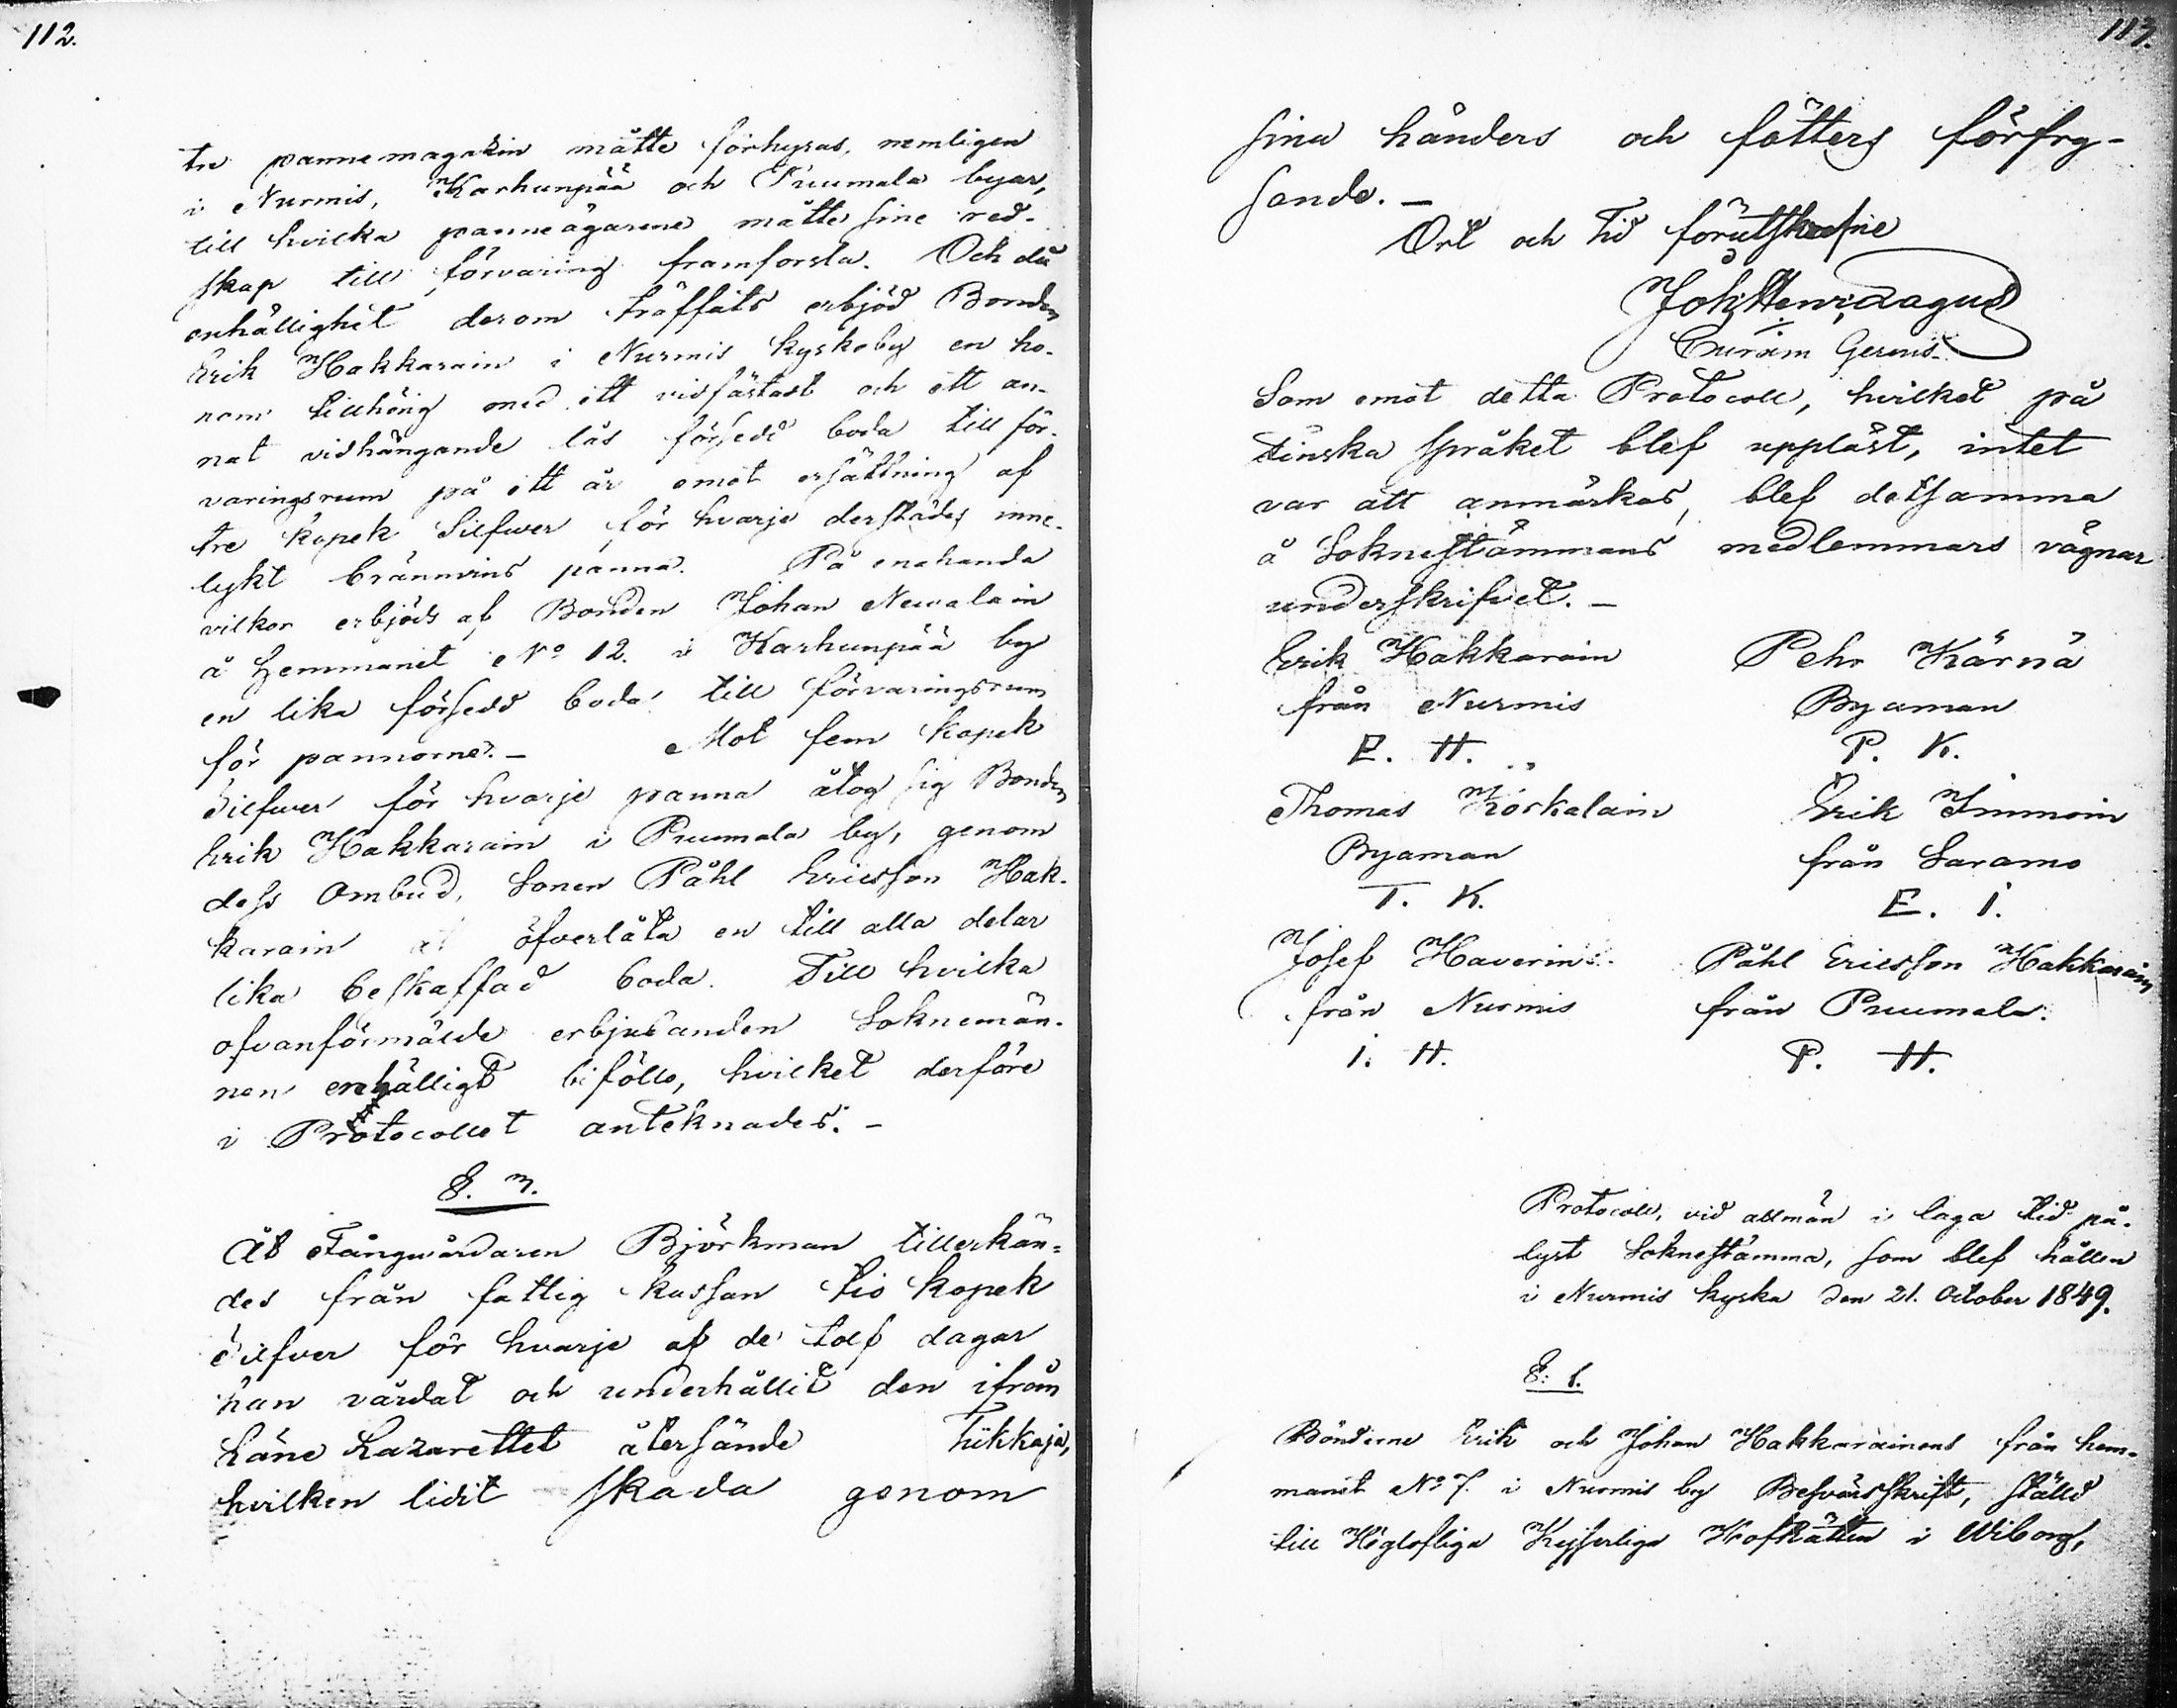 112.
tre pannemagazin måtte förhyras, nemligen
i Nurmis, Karhunpää och Puumala byar,
till hvilka panneägarene måtte sine red-
skap till förvaring framforsla. Och då
enhällighet derom träffats erbjöd Bonden
Erik Hakkarain i Nurmis kyrkoby en ho-
nom tillhörig med ett vidfästadt och ett an-
nat vidhängande lås försedd boda till för-
varingsrum på ett år emot ersättning af
tre kopek Silfwer för hvarje derstädes inne-
lykt brännvins panna. På enahanda
vilkor erbjöds af Bonden Johan Nevalain
å hemmanet No 12. i Karhunpää by
en lika försedd boda till förvaringsrum
för pannorne. - Mot fem kopek
Silfwer för hvarje panna åtog sig Bonden
Erik Hakkarain i Puumala by, genom
dess Ombud, Sonen Påhl Ericsson Hak-
karain at öfverlåta en till alla delar
lika beskaffad boda. Till hvilka
ofvanförmälde erbjudanden Soknemän-
nen enhälligt biföllo, hvilket derföre
i Protocollet anteknades. -
§. 3.
Åt Fångwårdaren Björkman tillerkän-
des från fattig kassan tio kopek
Silfver för hvarje af de tolf dagar
han vårdat och underhållit den ifrån
Läne Lazarettet återsände Tikkaja,
hvilken lidit skada genom
113.
sina händers och fötters förfry-
sande. -
Ort och tid förutskrefne
Joh. Henr. Lagus
Curam Gerens.
Som emot detta Protocoll, hvilket på
finska språket blef uppläst, intet
var att anmärkas, blef detsamma
å Soknestämmans medlemmars vägnar
underskrifvet. -
Erik Hakkarain Pehr Kärnä
från Nurmis Byaman
E. H. P. K.
Thomas Körkalain Erik Immoin
Byaman från Saramo
T. K. E. I.
Josef Haverin Påhl Ericsson Hakkarain
från Nurmis från Puumala.
I. H. P. H.
Protocoll, vid allmän i laga tid på-
lyst Soknestämma, som blef hållen
i Nurmis kyrka den 21. October 1849.
§: 1.
Bönderne Erik och Johan Hakkarainens från hem-
manet No 7. i Nurmis by Besvärsskrift, ställd
till Höglofliga Kejserliga HofRätten i Wiborg,